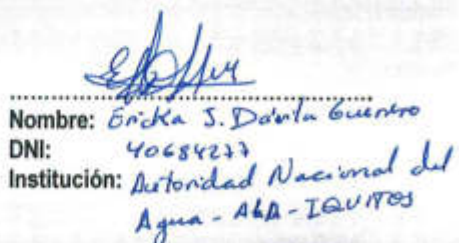 Nombre: Ericka J. Dávila Guerrero
DNI: 40684277
Institución: Autoridad Nacional del
Agua - ALA - IQUITOS